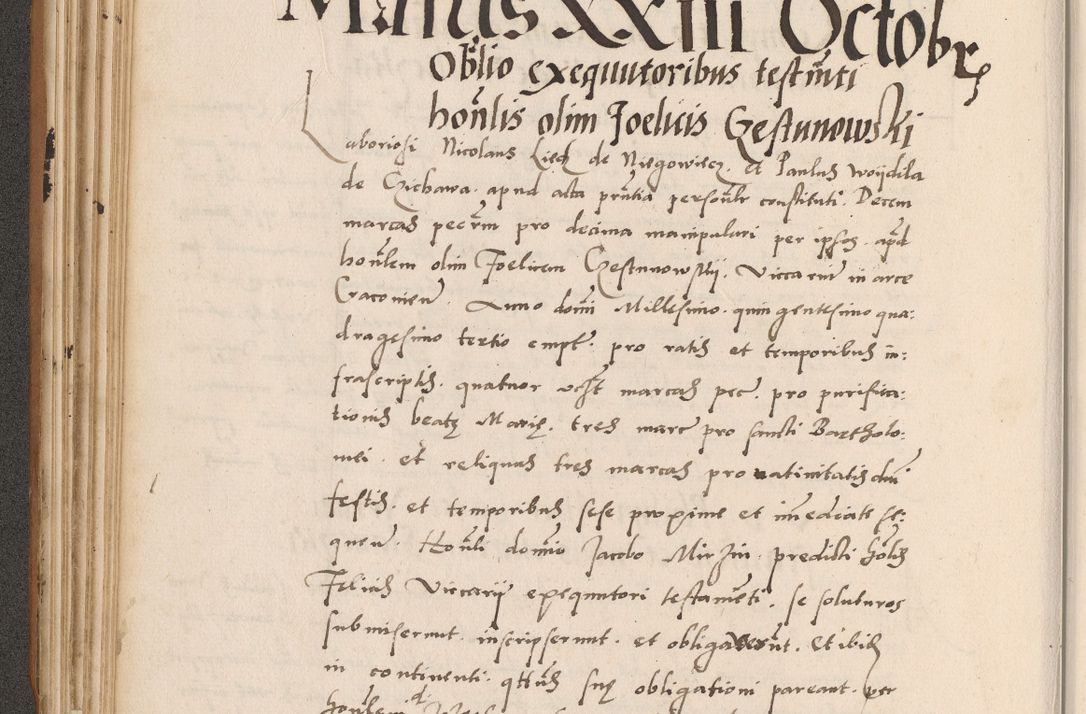 Martis XXIII Octobr
Oblio exequutoribus testmti
honlis olim Foelicis Czestunowski
Laboriosi Nicolaus Liedz de Niegowiecz. et Paulus Woijdila
de Czichawa. apud acta pntia personlr constituti. Decem
marcas pecnm pro decima manipulari per ipsos. apd
honlem olim Foelicem Czestunowskij. Viccarium in arce
Cracovien. Anno domi Millesimo. quingentesimo qua:
dragesimo tertio empt. pro ratis et temporibus in:
frascriptis. quatuor marcas pec. pro purifica:
tionis beatę Marię. tres marc pro sancti Bartholo:
mei. et reliquas tres marcas pro nativitatis dni
festis. et temporibus sese proxime et immediate se:
quen. Honli domio Jacobo Mirzin. predicti holis
Felicis Viccarij exequutori testamenti. se soluturos
submiserunt. inscripserunt. et obligaverunt. Et ibid
in continenti. qttus suę obligationi pareant. per
honlem